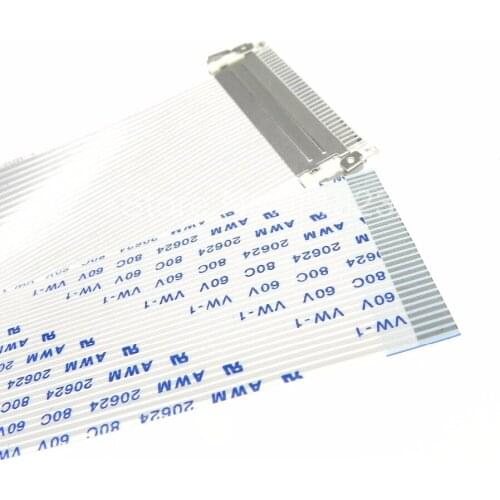 AWM 20624 80C 60V VW-1
AWM 20624 80C 60V VW-1
AWM 20624 80C 60V VW-1
AWM 20624 80C 60V VW-1
AWM 20624 80C 60V
AWM 20624 80C 60V VW-1
AWM 20624
AWM 20624 80C
AWM 20624 80C 60V
AWM 20624 80C 60V VW-1